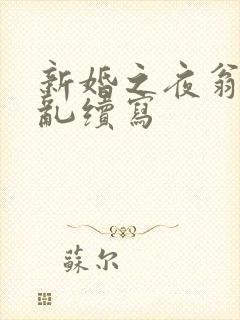 新婚之夜翁
亂續寫
蘇尔